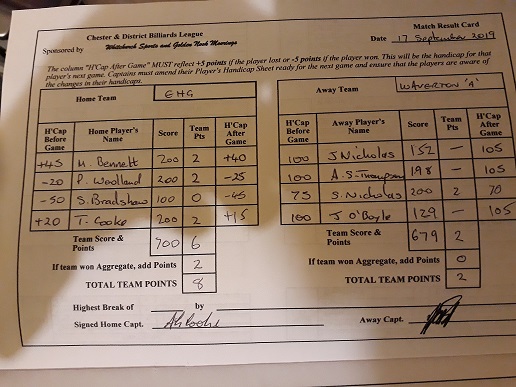 Chester & District Billiards League
Match Result Card
Sponsored by Whitchurch Sports and Golden Nook Moorings
Date 17 September 2019
The column "H'Cap After Game" MUST reflect +5 points if the player lost or -5 points if the player won. This will be the handicap for that
player's next game. Captains must amend their Player's Handicap Sheet ready for the next game and ensure that the players are aware of
the changes in their handicaps.
Home Team EHG
Away Team WAVERTON 'A'
H'Cap Before Game Home Player's Name Score Team Pts H'Cap After Game
+45 M. Bennett 200 2 +40
-20 P. Woodland 200 2 -25
-50 S. Bradshaw 100 0 -45
+20 T. Cooke 200 2 +15
Team Score & Points 700 6
If team won Aggregate, add Points 2
TOTAL TEAM POINTS 8
H'Cap Before Game Away Player's Name Score Team Pts H'Cap After Game
100 J Nicholas 152 — 105
100 A.S. Thompson 198 — 105
75 S. Nicholas 200 2 70
100 J O'Boyle 129 — 105
Team Score & Points 679 2
If team won Aggregate, add Points 0
TOTAL TEAM POINTS 2
Highest Break of by
Signed Home Capt.
Away Capt.